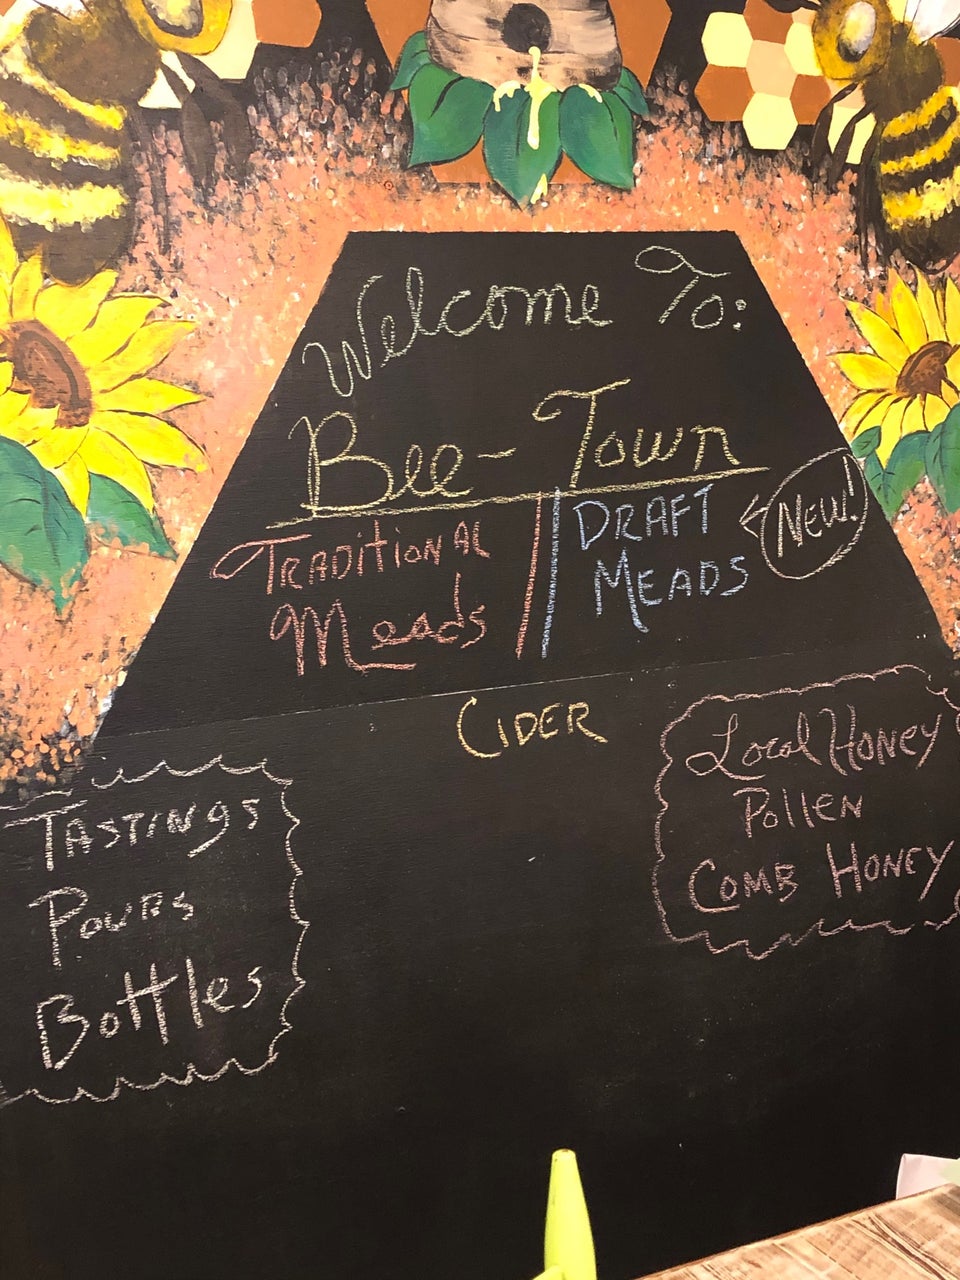 Welcome To:
Bee-Town
Traditional
Meads
DRAFT
MEADS
New!
CIDER
Tastings
Pours
Bottles
Local Honey
Pollen
Comb Honey